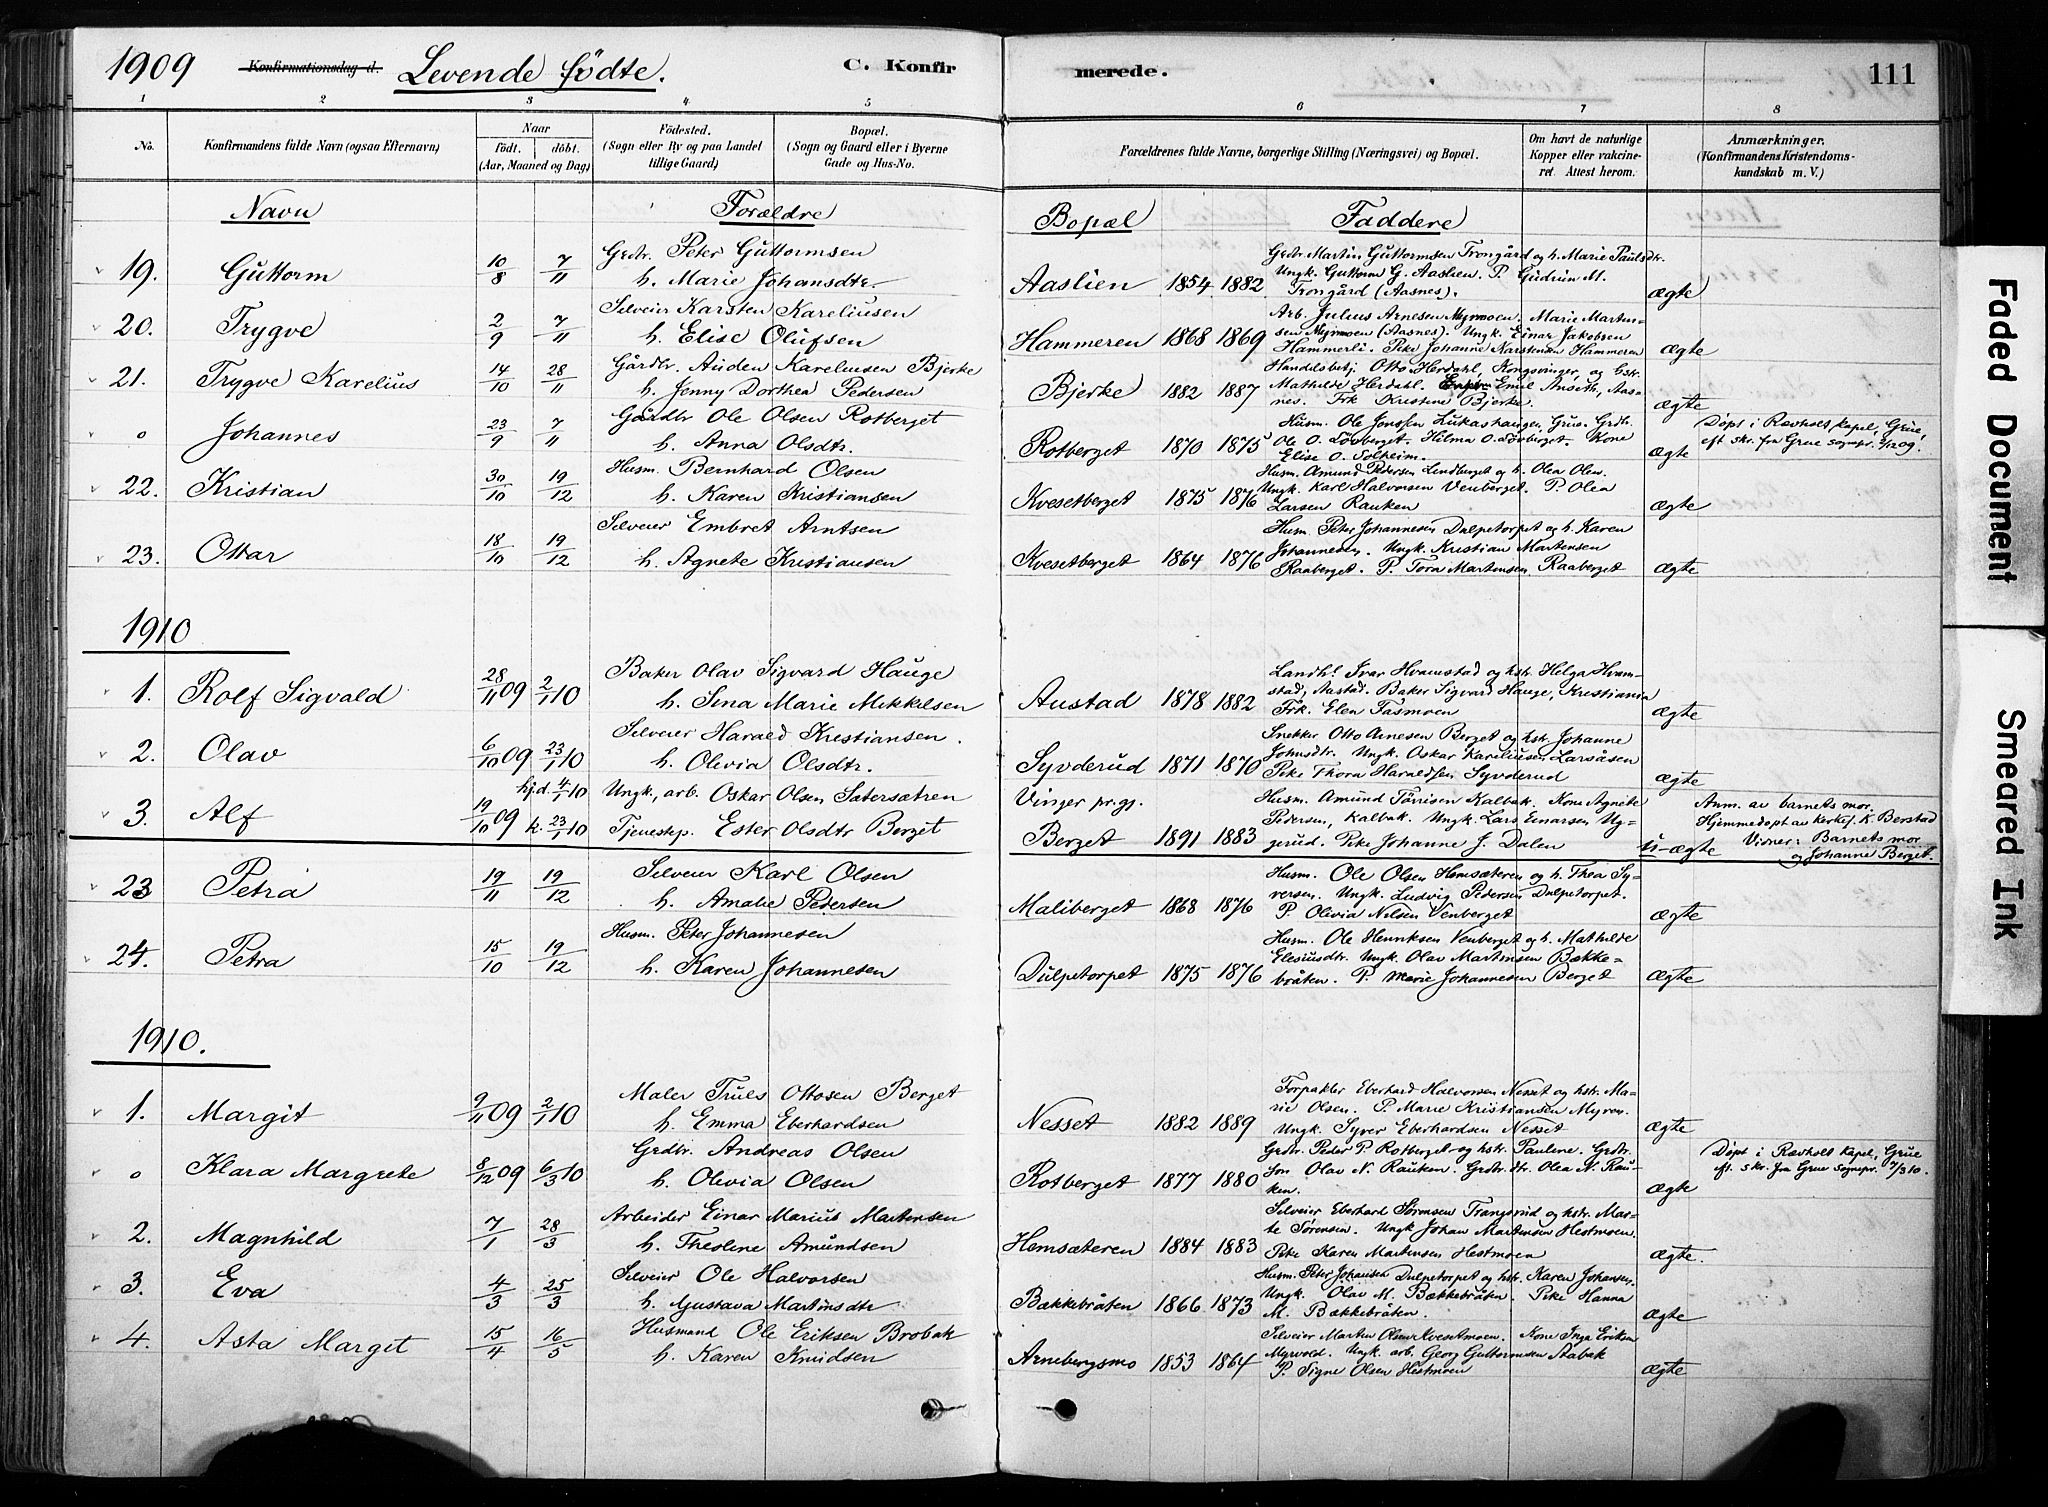 1909 Konfirmationsdag d. Levende födte. C. Konfir merede. 111
1 2 3 4 5 6 7 8
No. Konfirmandens fulde Navn (ogsaa Efternavn) Naar födt. döbt. (Aar, Maaned og Dag) Födested. (Sogn eller By og paa Landet tillige Gaard) Bopæl. (Sogn og Gaard eller i Byerne Gade og Hus-No. Forældrenes fulde Navne, borgerlige Stilling (Næringsvei) og Bopæl. Om havt de naturlige Kopper eller vakcineret. Attest herom. Anmærkninger. (Konfirmandens Kristendomskundskab m. V.)
Navn Forældre Bopæl Faddere
19. Guttorm 10/8 7/11 Grdbr. Peter Guttormsen
h. Marie Johansdtr. Aaslien 1854 1882
Grdbr. Martin Guttormsen Trongård og h. Marie Paulsdtr.
Ungk. Guttorm G. Aaslien. P. Gudrun M.
Trongård (Aasnes). ægte
20. Trygve 2/9 7/11 Selveier Karsten Kareliusen
h. Elise Olufsen Hammeren 1868 1869
Arb. Julius Arnesen Myrmoen. Marie Marten-
sen Myrmoen (Aasnes). Ungk. Einar Jakobsen
Hammerli. Pike Johanne Karstensen Hammeren ægte
21. Trygve Karelius 14/10 28/11 Gårdbr. Auden Kareliusen Bjerke
h. Jenny Dorthea Pedersen Bjerke 1882 1887
Handelsbetj. Otto Herdahl, Kongsvinger, og hstr.
Mathilde Herdahl. Emil Anseth, Aas-
nes. Frk Kristine Bjerke. ægte
o Johannes 23/9 7/11 Gårdbr Ole Olsen Rotberget
h. Anna Olsdtr. Rotberget 1870 1875
Husm. Ole Jonssen Lukashaugen, Grue. Grdbr.
Ole O. Lövberget. Hilma O. Lövberget. Kone
Elise O. Solheim. ægte
Döpt i Revholt kapel, Grue,
eft skr. fra Grue sognepr.
22. Kristian 30/10 19/12 Husm. Bernhard Olsen
h. Karen Kristiansen Kvesetberget 1875 1876
Husm. Amund Pedersen Lundberget og h. Olea Olsen.
Ungk. Karl Halvorsen Venberget. P. Olea
Larsen Rauken ægte
23. Ottar 18/10 19/12 Selveier Embret Arntsen
h. Agnete Kristiansen Kvesetberget 1864 1876
Husm. Peter Johannesen Dulpetorpet og h. Karen
Johannesen. Ungk. Kristian Martensen
Raaberget. P. Tora Martensen, Raaberget ægte
1910
1. Rolf Sigvald 28/11 09 2/1 10 Baker Olav Sigvard Hauge
h. Sina Marie Mikkelsen Austad 1878 1882
Landh. Ivar Hvamstad og hstr. Helga Hvam-
stad, Aastad. Baker Sigvard Hauge, Kristiania
Frk. Elen Tasmoen ægte
2. Olav 6/10 09 23/1 10 Selveier Harald Kristiansen.
h. Olivia Olsdtr. Syvderud 1871 1870
Snekker Otto Arnesen Berget og hstr. Johanne
Johnsdtr. Ungk. Oskar Kareliusen Larsåsen
Pike Thora Haraldsen Syvderud ægte
3. Alf 19/10 09 hj.d. 4/1 10 k. 23/1 10 Ungk., arb. Oskar Olsen Satersætren
Tjenestep. Ester Olsdtr Berget Vinger pr.gj.
Berget 1891 1883
Husm. Amund Törrisen Kalbak. Kone Agnete
Pedersen, Kalbak. Ungk. Lars Einarsen Ug-
gerud. Pike Johanne J. Dalen u-ægte
Anm. av barnets mor.
Hjemmedöpt av kirkes. K. Berstad
Visner: Barnets mor
og Johanne Berget.
23 Petra 19/11 19/12 Selveier Karl Olsen
h. Amalie Pedersen Maliberget 1868 1876
Husm. Ole Olsen Hemsæteren og h. Thea Sy-
versen. Ungk. Ludvig Pedersen Dulpetorpet.
P. Olivia Nilsen Venberget ægte
24. Petra 15/10 19/12 Husm. Peter Johannesen
h. Karen Johannesen Dulpetorpet 1875 1876
Husm. Ole Henriksen Venberget og h. Mathilde
Elesiusdtr. Ungk. Olav Martinsen Bække-
bråten. P. Marie Johannesen Berget ægte
1910.
1. Margit 9/11 09 2/1 10 Maler Truls Ottosen Berget
h. Emma Eberhardsen Nesset 1882 1889
Forpakter Eberhard Halvorsen Nesset og hstr. Ma-
rie Olsen. P. Marie Kristiansen Myrm.
Ungk. Syver Eberhardsen Nesset ægte
o Klara Margrete 8/12 09 6/3 10 Grdbr. Andreas Olsen
h. Olivia Olsen Rotberget 1877 1880
Grdbr. Peder P. Rotberget og hstr. Pauline. Grdbr.
Son Olav N. Rauken. Grdbr.dtr. Olea N. Rau-
ken. ægte
Döpt i Revholt Kapel, Grue
eft. skr. fra Grue sognepr. 7/3 10.
2. Magnhild 7/1 28/3 Arbeider Einar Marius Martensen
h. Theoline Amundsen Hemsæteren 1884 1883
Selveier Eberhard Sörensen Trangsrud og hstr. Mar-
te Sörensen. Ungk Johan Martensen Hestmoen.
Pike Karen Martensen Hestmoen ægte.
3. Eva 4/3 25/3 Selveier Ole Halvorsen
h. Gustava Martinsdtr Bækkebråten 1866 1873
Husm. Peter Johansen Dulpetorpet og hstr. Karen Johansen.
Ungk. Olav M. Bækkebråten. Pike Hanna
M. Bækkebråten. ægte
4. Asta Margit 15/4 16/5 Husmand Ole Eriksen Brobak
h. Karen Knudsen Arnebergsmo 1853 1864
Selveier Marten Olsen Kvesetmoen. Kone Inga Eriksen
Myrvold. Ungk. arb. Georg Guttormsen Aabak
P. Signe Olsen Hestmoen ægte
Faded Document
Smeared Ink